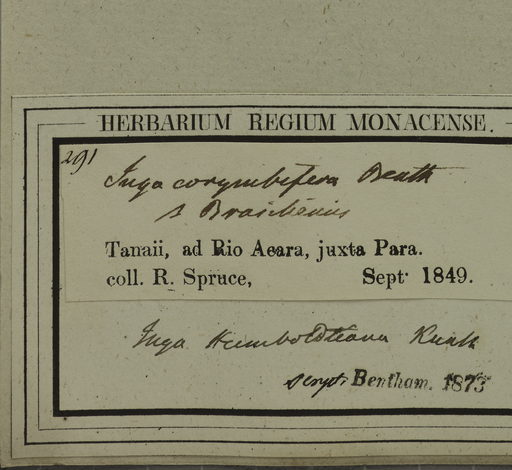 HERBARIUM REGIUM MONACENSE.
291
Inga corymbifera Benth
Tanaii, ad Rio Acara, juxta Para.
coll. R. Spruce, Sept. 1849.
Inga Humboldtiana Kunth
scrips. Bentham. 1873